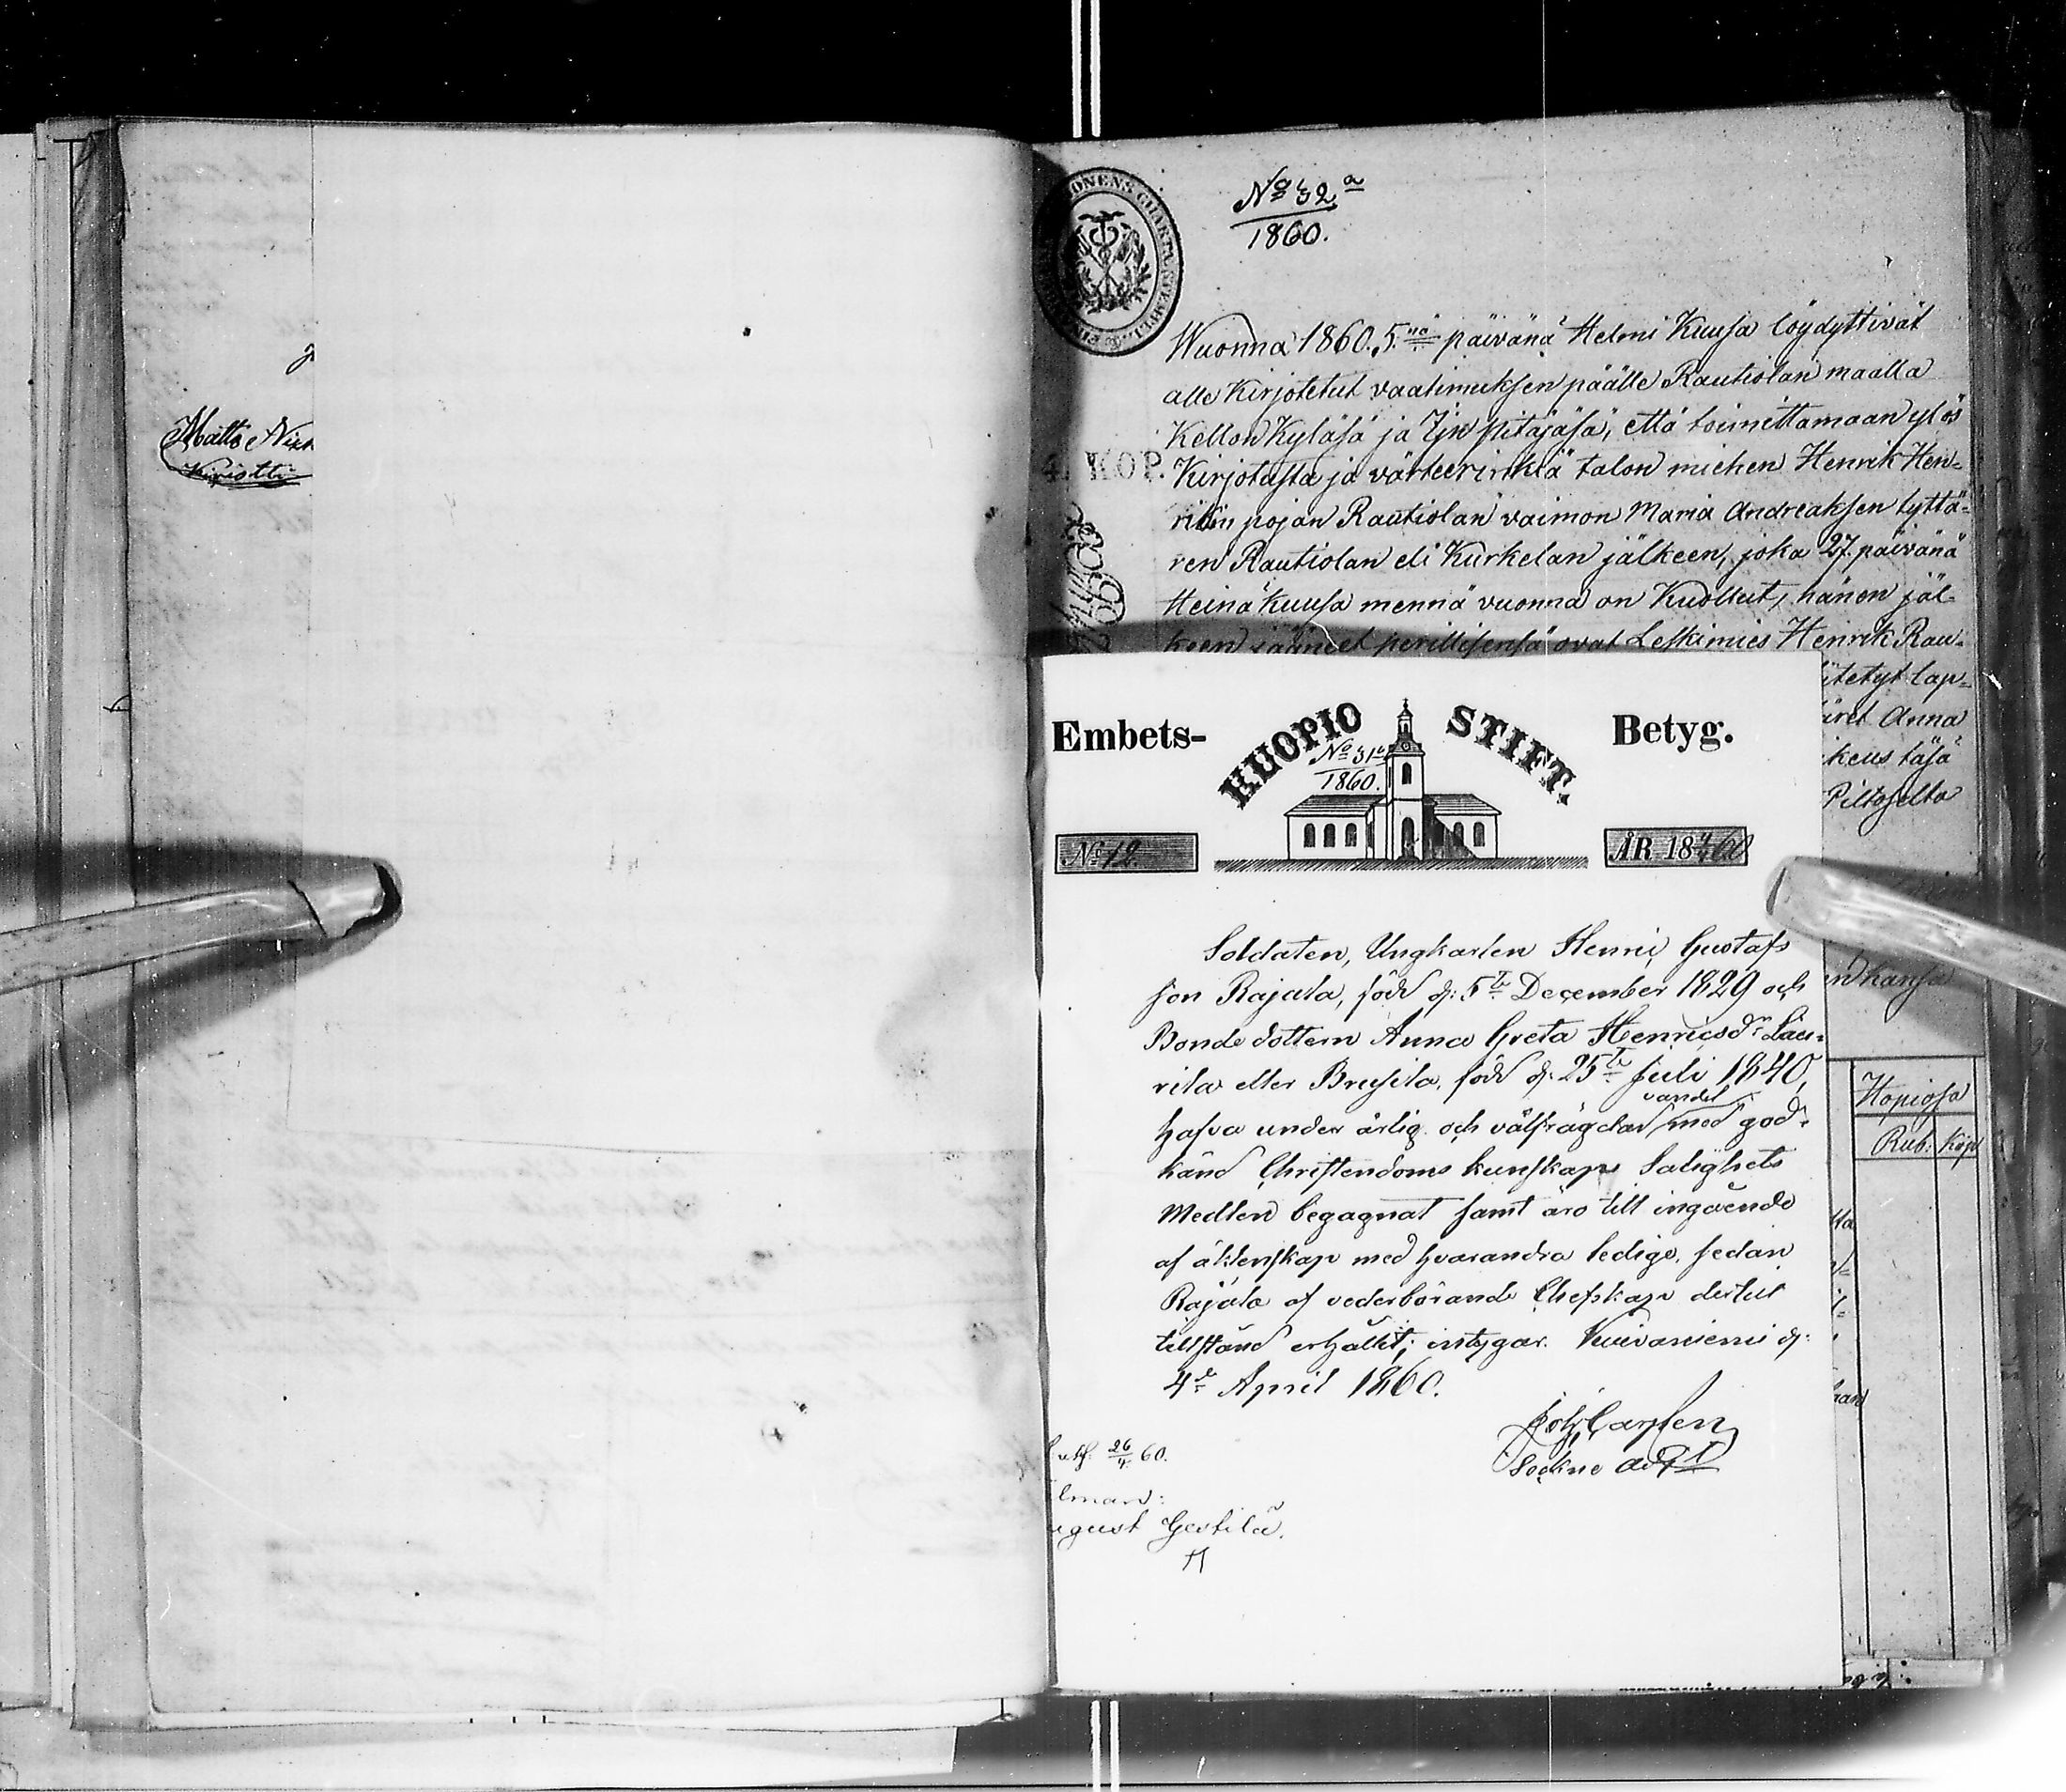 Matts
No 32a
1860.
4. KOP.
Wuonna 1860. 5nä päivänä Helmi Kuusa löydyttivät
alle Kirjotetut vaatimuksen päälle Rautiolan maalla
Kellon Kyläsä ja Ijn pitäjäsä, että toimittamaan ylös
Kirjotusta ja värteerinkiä talon miehen Henrik Hen-
rikin pojan Rautiolan vaimon Maria Andreaksen tyttä-
ren Rautiolan eli Kurkelan jälkeen, joka 27. päivänä
Heinä kuusa mennä vuonna on Kuollut, hänen jäl-
keen jääneet perillisensä ovat Leskimies Henrik Rau-
itetyt lap-
äret Anna
ikeus täsä
Piltoselta
n kansa
Hopiosa
Rub. Kop
Embets- KUOPIO STIFT. Betyg.
No 31
1860.
No 12. ÅR 1860
Soldaten, Ungkarlen Henric Gustafs
son Rajala, född d: 5te December 1829 och
Bonde dottern Anna Greta Henricsdr Lau-
rila eller Brusila, född d. 25te Juli 1840,
vandel
hafva under ärlig och välfrägdad med god-
känd Christendoms kunskap Salighets
Medlen begagnat samt äro till ingående
af äktenskap med hvarandra ledige, sedan
Rajala af vederbörande Chefskap dertill
tillstånd erhållit; intygar. Kuivaniemi d:
4de April 1860.
Joh. Carlsen
Sockne adjt
26/4 60.
lman:
ugust Gestilä.